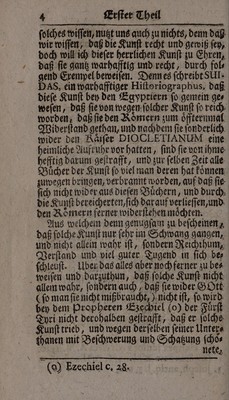 4 Erster Theil
solches wissen, nutzt uns auch zu nichts, denn daß
wir wissen, daß die Kunst recht und gewiß sey,
doch will ich dieser herrlichen Kunst zu Ehren,
daß sie gantz warhafftig und recht, durch fol-
gend Exempel beweisen. Denn es schreibt SUI-
DAS, ein warhafftiger Historiographus, daß
diese Kunst bey den Egyptiern so gemein ge-
wesen, daß sie von wegen solcher Kunst so reich
worden, daß sie den Römern zum öffternmal
Widerstand gethan, und nachdem sie sonderlich
wider den Käiser DIOCLETIANUM eine
heimliche Auffruhr vor hatten, sind sie von ihme
hefftig darum gestrafft, und zur selben Zeit alle
Bücher der Kunst so viel man deren hat können
zuwegen bringen, verbrannt worden, auf daß sie
sich nicht wider aus diesen Büchern, und durch
die Kunst bereicherten, sich darauf verliessen, und
den Römern ferner widerstehen möchten.
Aus welchem denn genugsam zu bescheinen,
daß solche Kunst zur sehr im Schwang gangen,
und nicht allein wahr ist, sondern Reichthum,
Verstand und viel guter Tugend in sich be-
schleust. Uber das alles aber noch ferner zu be-
weisen und darzuthun, daß solche Kunst nicht
allein wahr, sondern auch, daß sie wider GOtt
(so man sie nicht mißbraucht,) nicht ist, so wird
bey dem Propheren Ezechiel (o) der Fürst
Tyri nicht derohalben gestrafft, daß er solche
Kunst trieb, und wegen derselben seiner Unter-
thanen mit Beschwerung und Schatzung schö-
nete,
(o) Ezechiel c. 28.